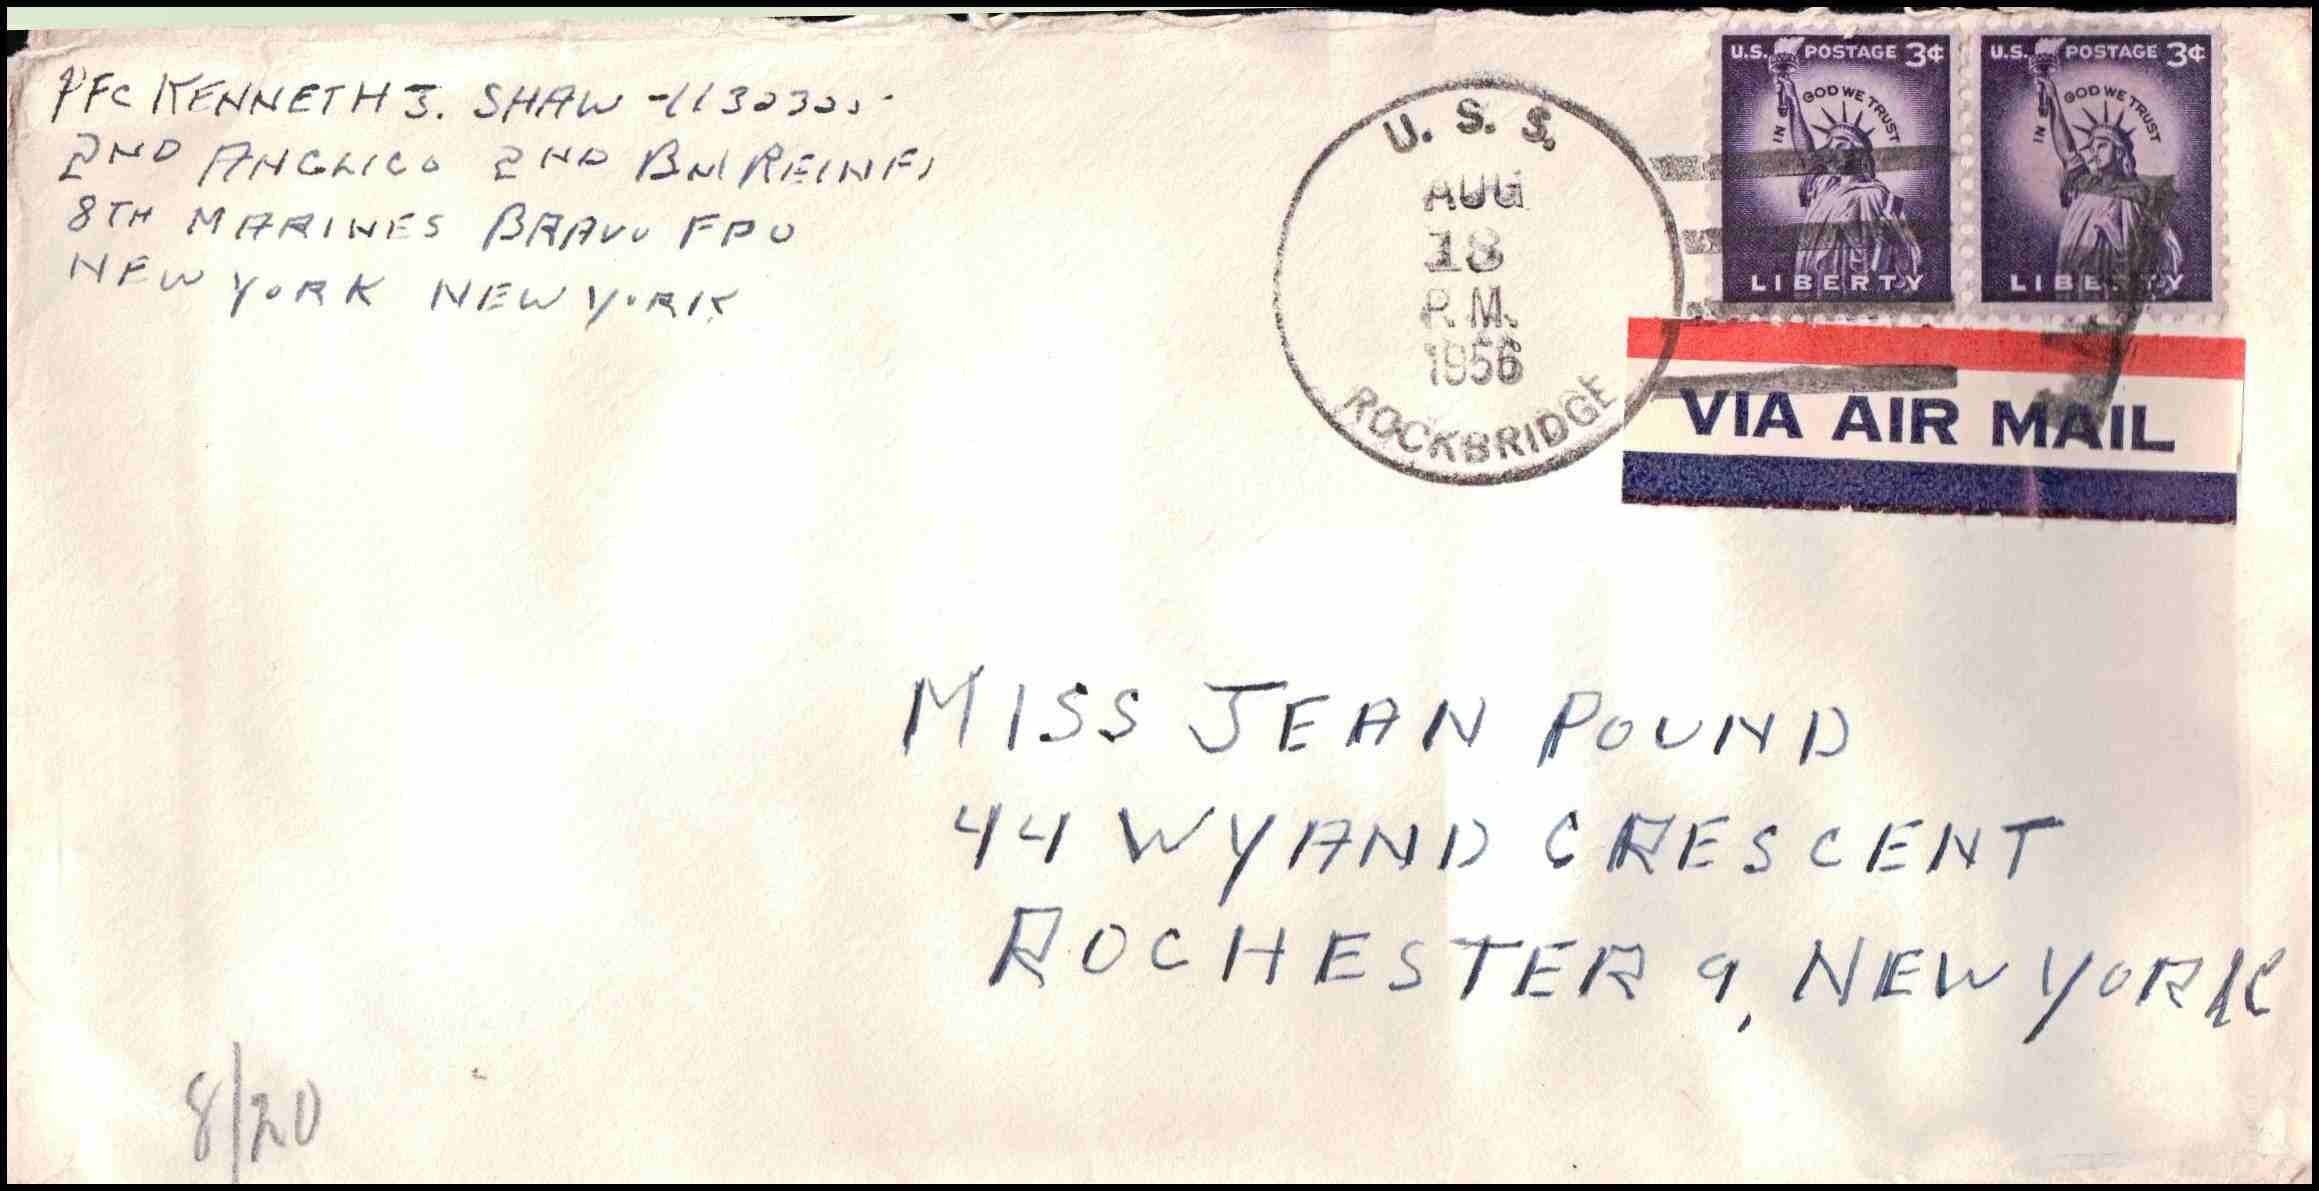 PFC KENNETH J. SHAW
2ND ANGLICO 2ND BN REINF,
8TH MARINES BRAVO FPO
NEW YORK NEW YORK
U. S. S.
AUG
18
P.M.
1956
ROCKBRIDGE
U.S. POSTAGE 3¢
IN GOD WE TRUST
LIBERTY
U.S. POSTAGE 3¢
IN GOD WE TRUST
LIBERTY
VIA AIR MAIL
MISS JEAN POUND
44 WYAND CRESCENT
ROCHESTER 9, NEW YORK
8/20